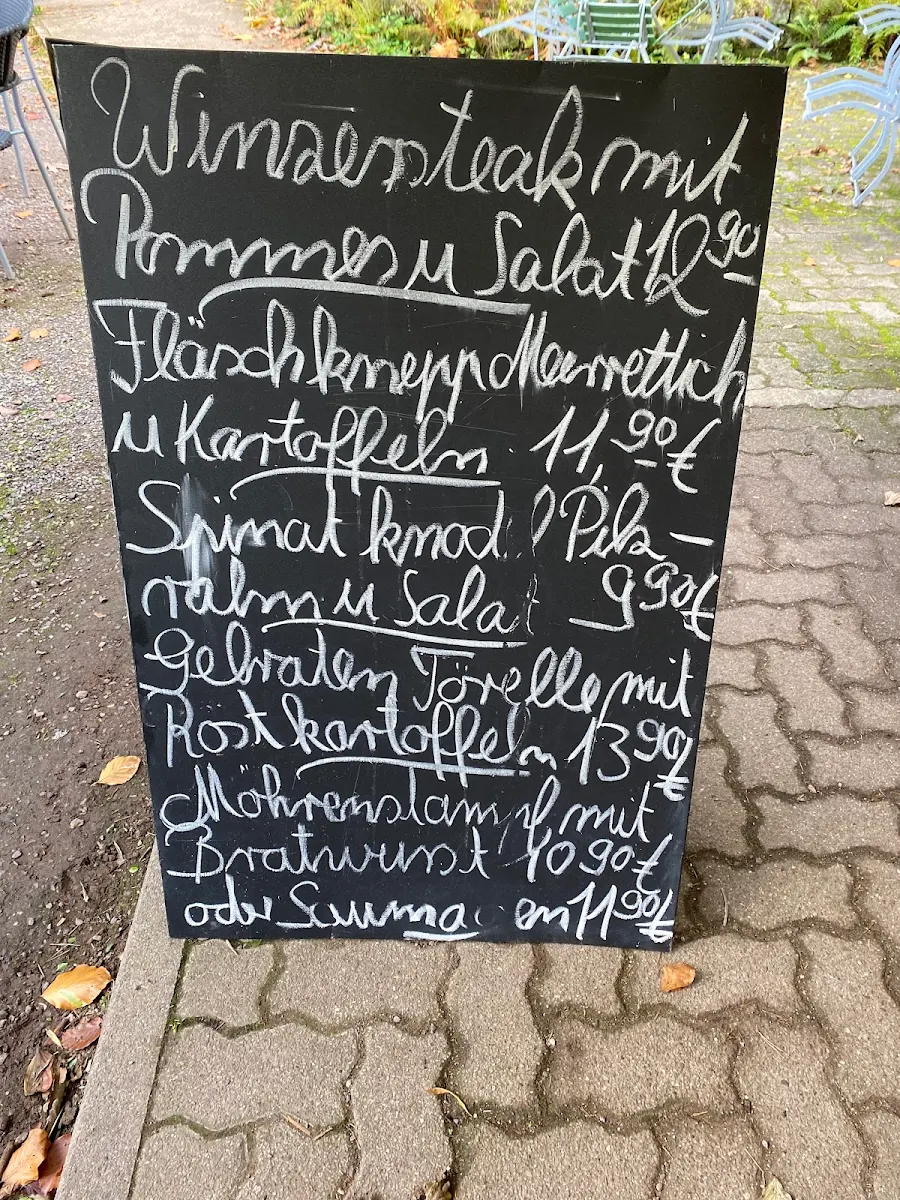 Winzersteak mit
Pommes u Salat 12 90
Fläschknepp Meerrettich
u Kartoffeln 11,90 €
Spinat knöd l Pilz-
rahm u Salat 9 90 €
Gebraten Forelle mit
Rostkartoffeln 13 90 €
Möhrenstampf mit
Bratwurst 10 90 €
oder Sauma en 11 90 €